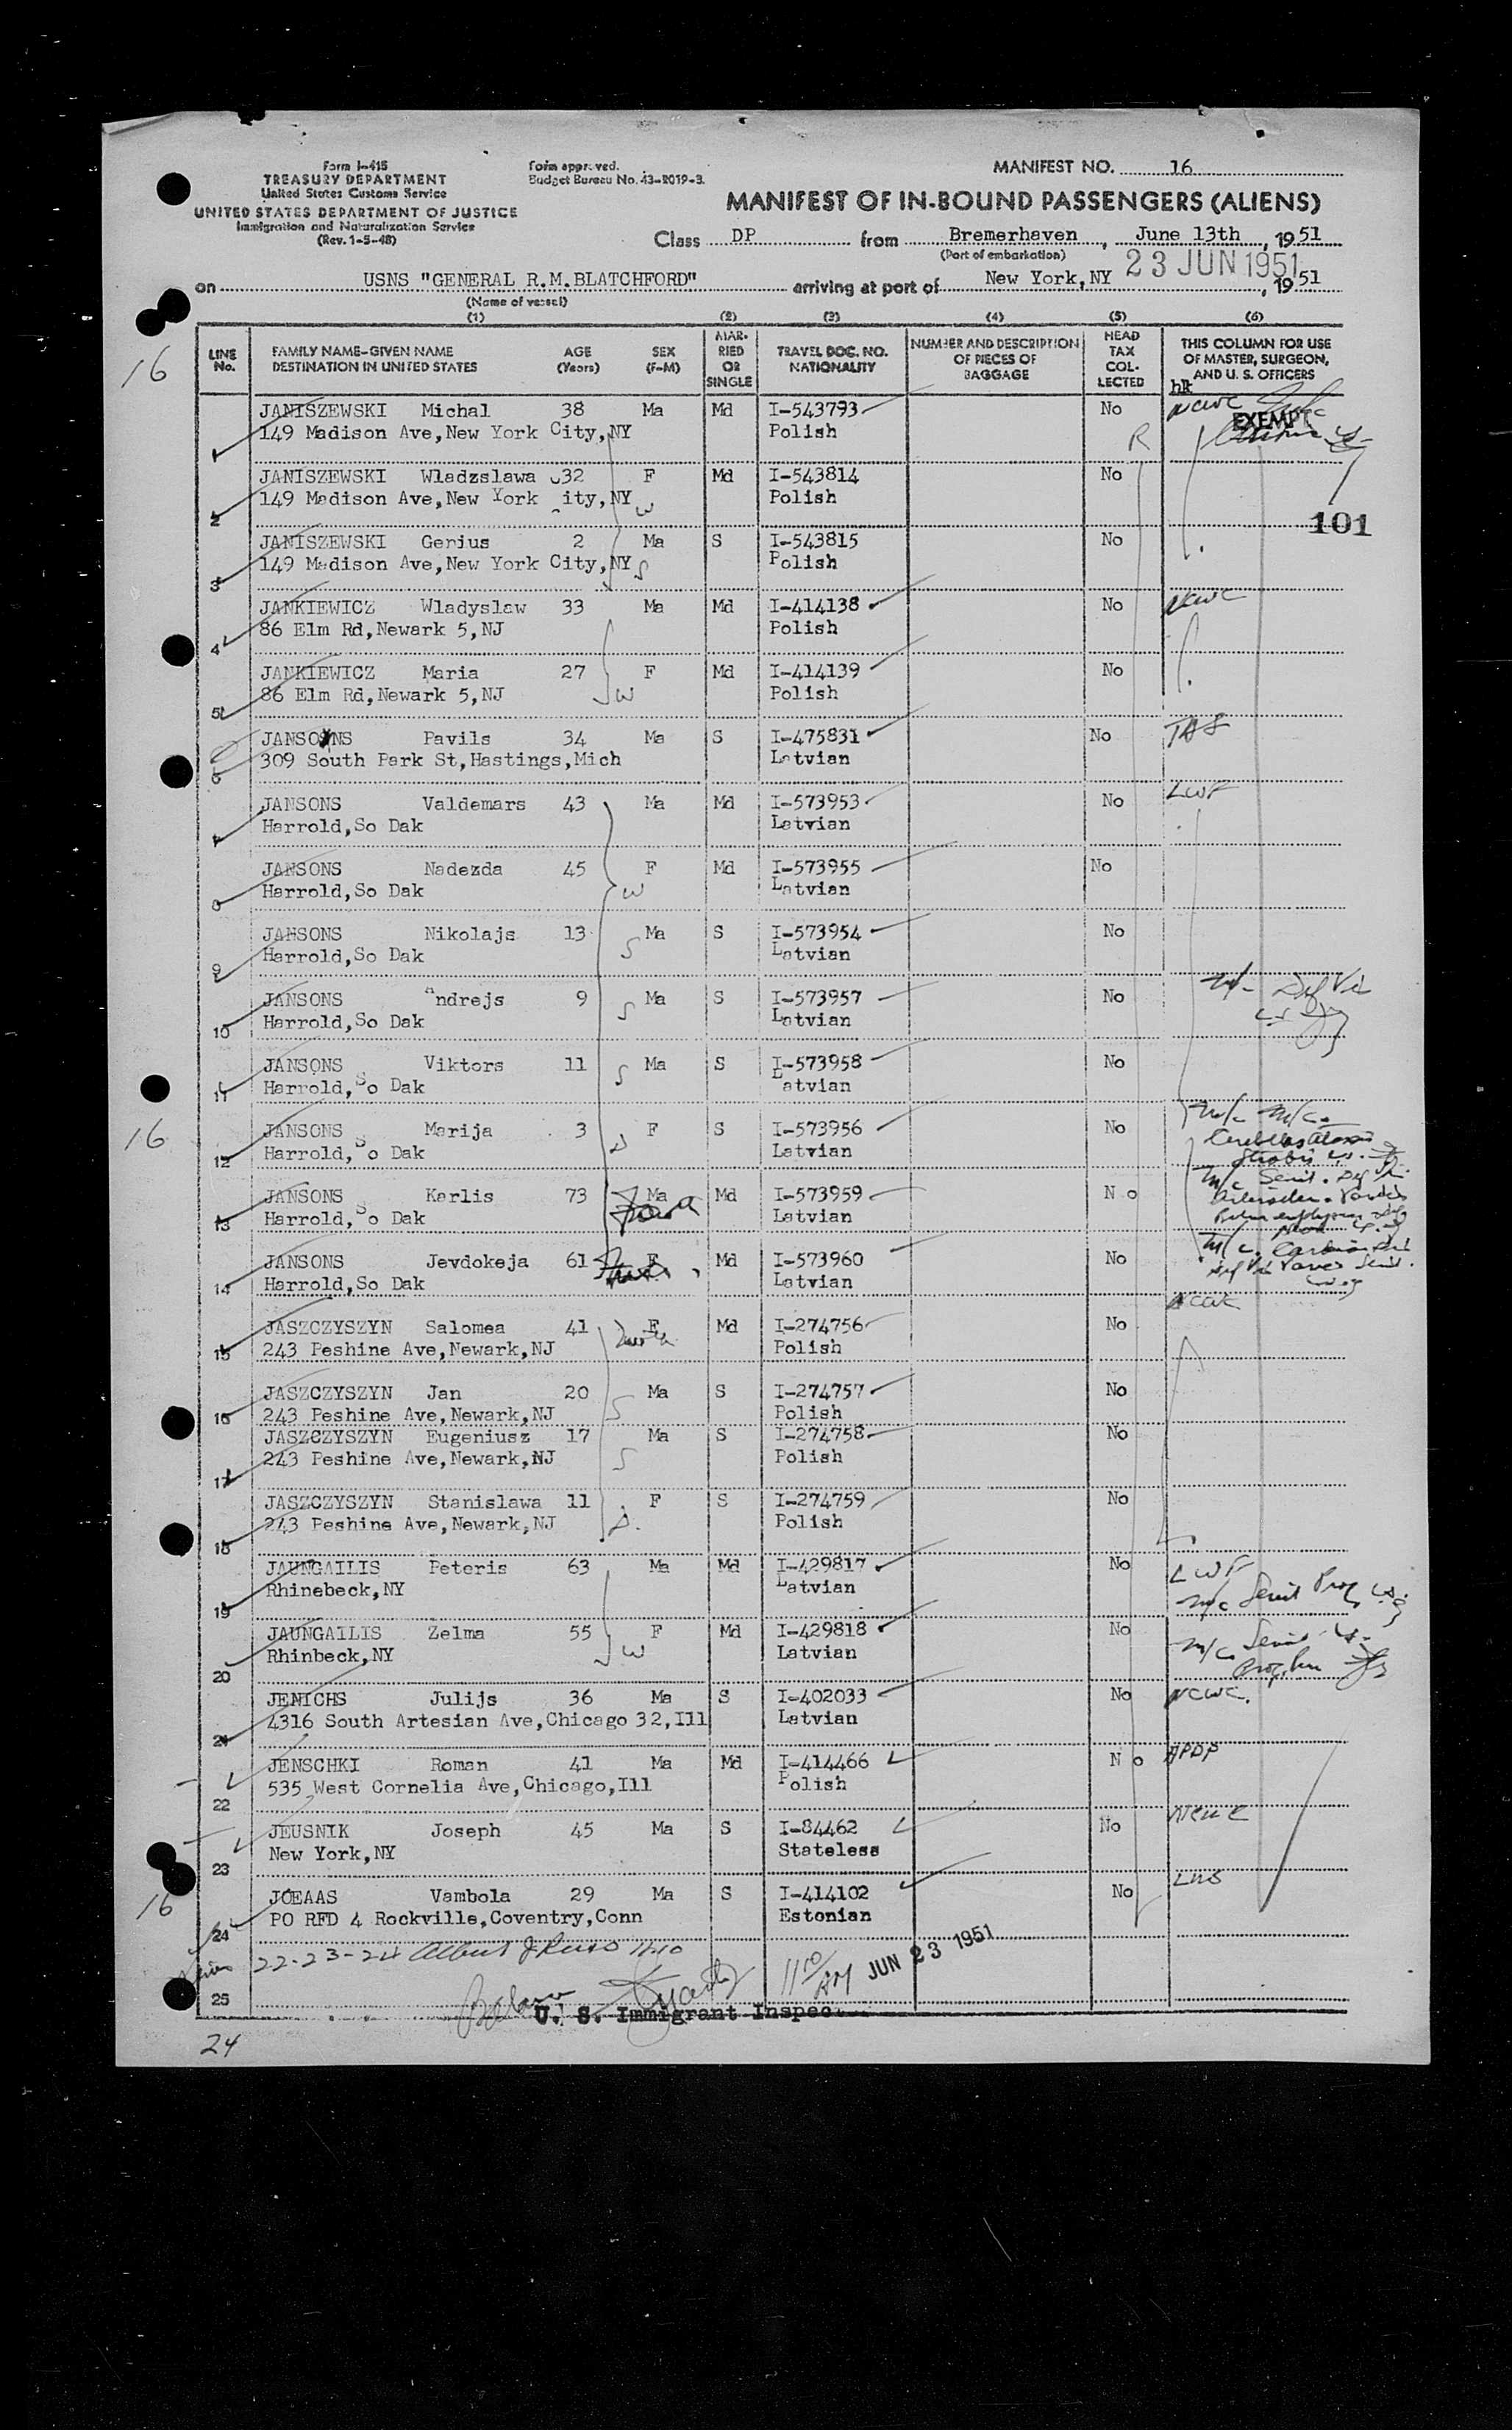 Form I-415
TREASURY DEPARTMENT
United States Customs Service
UNITED STATES DEPARTMENT OF JUSTICE
Immigration and Naturalization Service
(Rev. 1-5-48)
Form approved.
Budget Bureau No. 43-R019-3.
MANIFEST NO. 16
MANIFEST OF IN-BOUND PASSENGERS (ALIENS)
Class DP from Bremerhaven, June 13th, 1951
(Port of embarkation)
23 JUN 1951
on USNS "GENERAL R.M.BLATCHFORD" arriving at port of New York,NY, 1951
(Name of vessel)
(1) (2) (3) (4) (5) (6)
LINE No. FAMILY NAME-GIVEN NAME DESTINATION IN UNITED STATES AGE (Years) SEX (F-M) MARRIED OR SINGLE TRAVEL DOC. NO. NATIONALITY NUMBER AND DESCRIPTION OF PIECES OF BAGGAGE HEAD TAX COLLECTED THIS COLUMN FOR USE OF MASTER, SURGEON, AND U. S. OFFICERS
16
hlt
1 JANISZEWSKI Michal 38 Ma Md I-543793 No NCWC
EXEMPT
149 Madison Ave,New York City,NY Polish R
2 JANISZEWSKI Wladzslawa 32 F Md I-543814 No
149 Madison Ave,New York ity,NY W Polish
101
3 JANISZEWSKI Genius 2 Ma S I-543815 No
149 Madison Ave,New York City,NY S Polish
4 JANKIEWICZ Wladyslaw 33 Ma Md I-414138 No NCWC
86 Elm Rd,Newark 5,NJ Polish
5 JANKIEWICZ Maria 27 F Md I-414139 No
86 Elm Rd,Newark 5,NJ W Polish
6 JANSONS Pavils 34 Ma S I-475831 No
309 South Park St,Hastings,Mich Latvian
7 JANSONS Valdemars 43 Ma Md I-573953 No LWF
Harrold,So Dak Latvian
8 JANSONS Nadezda 45 F Md I-573955 No
Harrold,So Dak W Latvian
9 JANSONS Nikolajs 13 Ma S I-573954 No
Harrold,So Dak S Latvian
10 JANSONS Andrejs 9 Ma S I-573957 No
Harrold,So Dak S Latvian
11 JANSONS Viktors 11 Ma S I-573958 No
Harrold,So Dak S Latvian
16
12 JANSONS Marija 3 F S I-573956 No
Harrold,So Dak D Latvian
13 JANSONS Karlis 73 Ma Md I-573959 No
Harrold,So Dak Latvian
14 JANSONS Jevdokeja 61 F Md I-573960 No
Harrold,So Dak Latvian
15 JASZCZYSZYN Salomea 41 F Md I-274756 No NCWC
243 Peshine Ave,Newark,NJ Polish
16 JASZCZYSZYN Jan 20 Ma S I-274757 No
243 Peshine Ave,Newark,NJ S Polish
17 JASZCZYSZYN Eugeniusz 17 Ma S I-274758 No
243 Peshine Ave,Newark,NJ S Polish
18 JASZCZYSZYN Stanislawa 11 F S I-274759 No
243 Peshine Ave,Newark,NJ D. Polish
19 JAUNGAILIS Peteris 63 Ma Md I-429817 No LWF
Rhinebeck,NY Latvian
20 JAUNGAILIS Zelma 55 F Md I-429818 No
Rhinbeck,NY W Latvian
21 JENICHS Julijs 36 Ma S I-402033 No NCWC.
4316 South Artesian Ave,Chicago 32,Ill Latvian
22 JENSCHKI Roman 41 Ma Md I-414466 No APDP
535 West Cornelia Ave,Chicago,Ill Polish
23 JEUSNIK Joseph 45 Ma S I-84462 No
New York,NY Stateless
16
24 JOEAAS Vambola 29 Ma S I-414102 No
PO RFD 4 Rockville,Coventry,Conn Estonian
22-23-24 Albert J Russo 11:10
11 10/AM JUN 23 1951
25
U. S. Immigrant Inspec
24